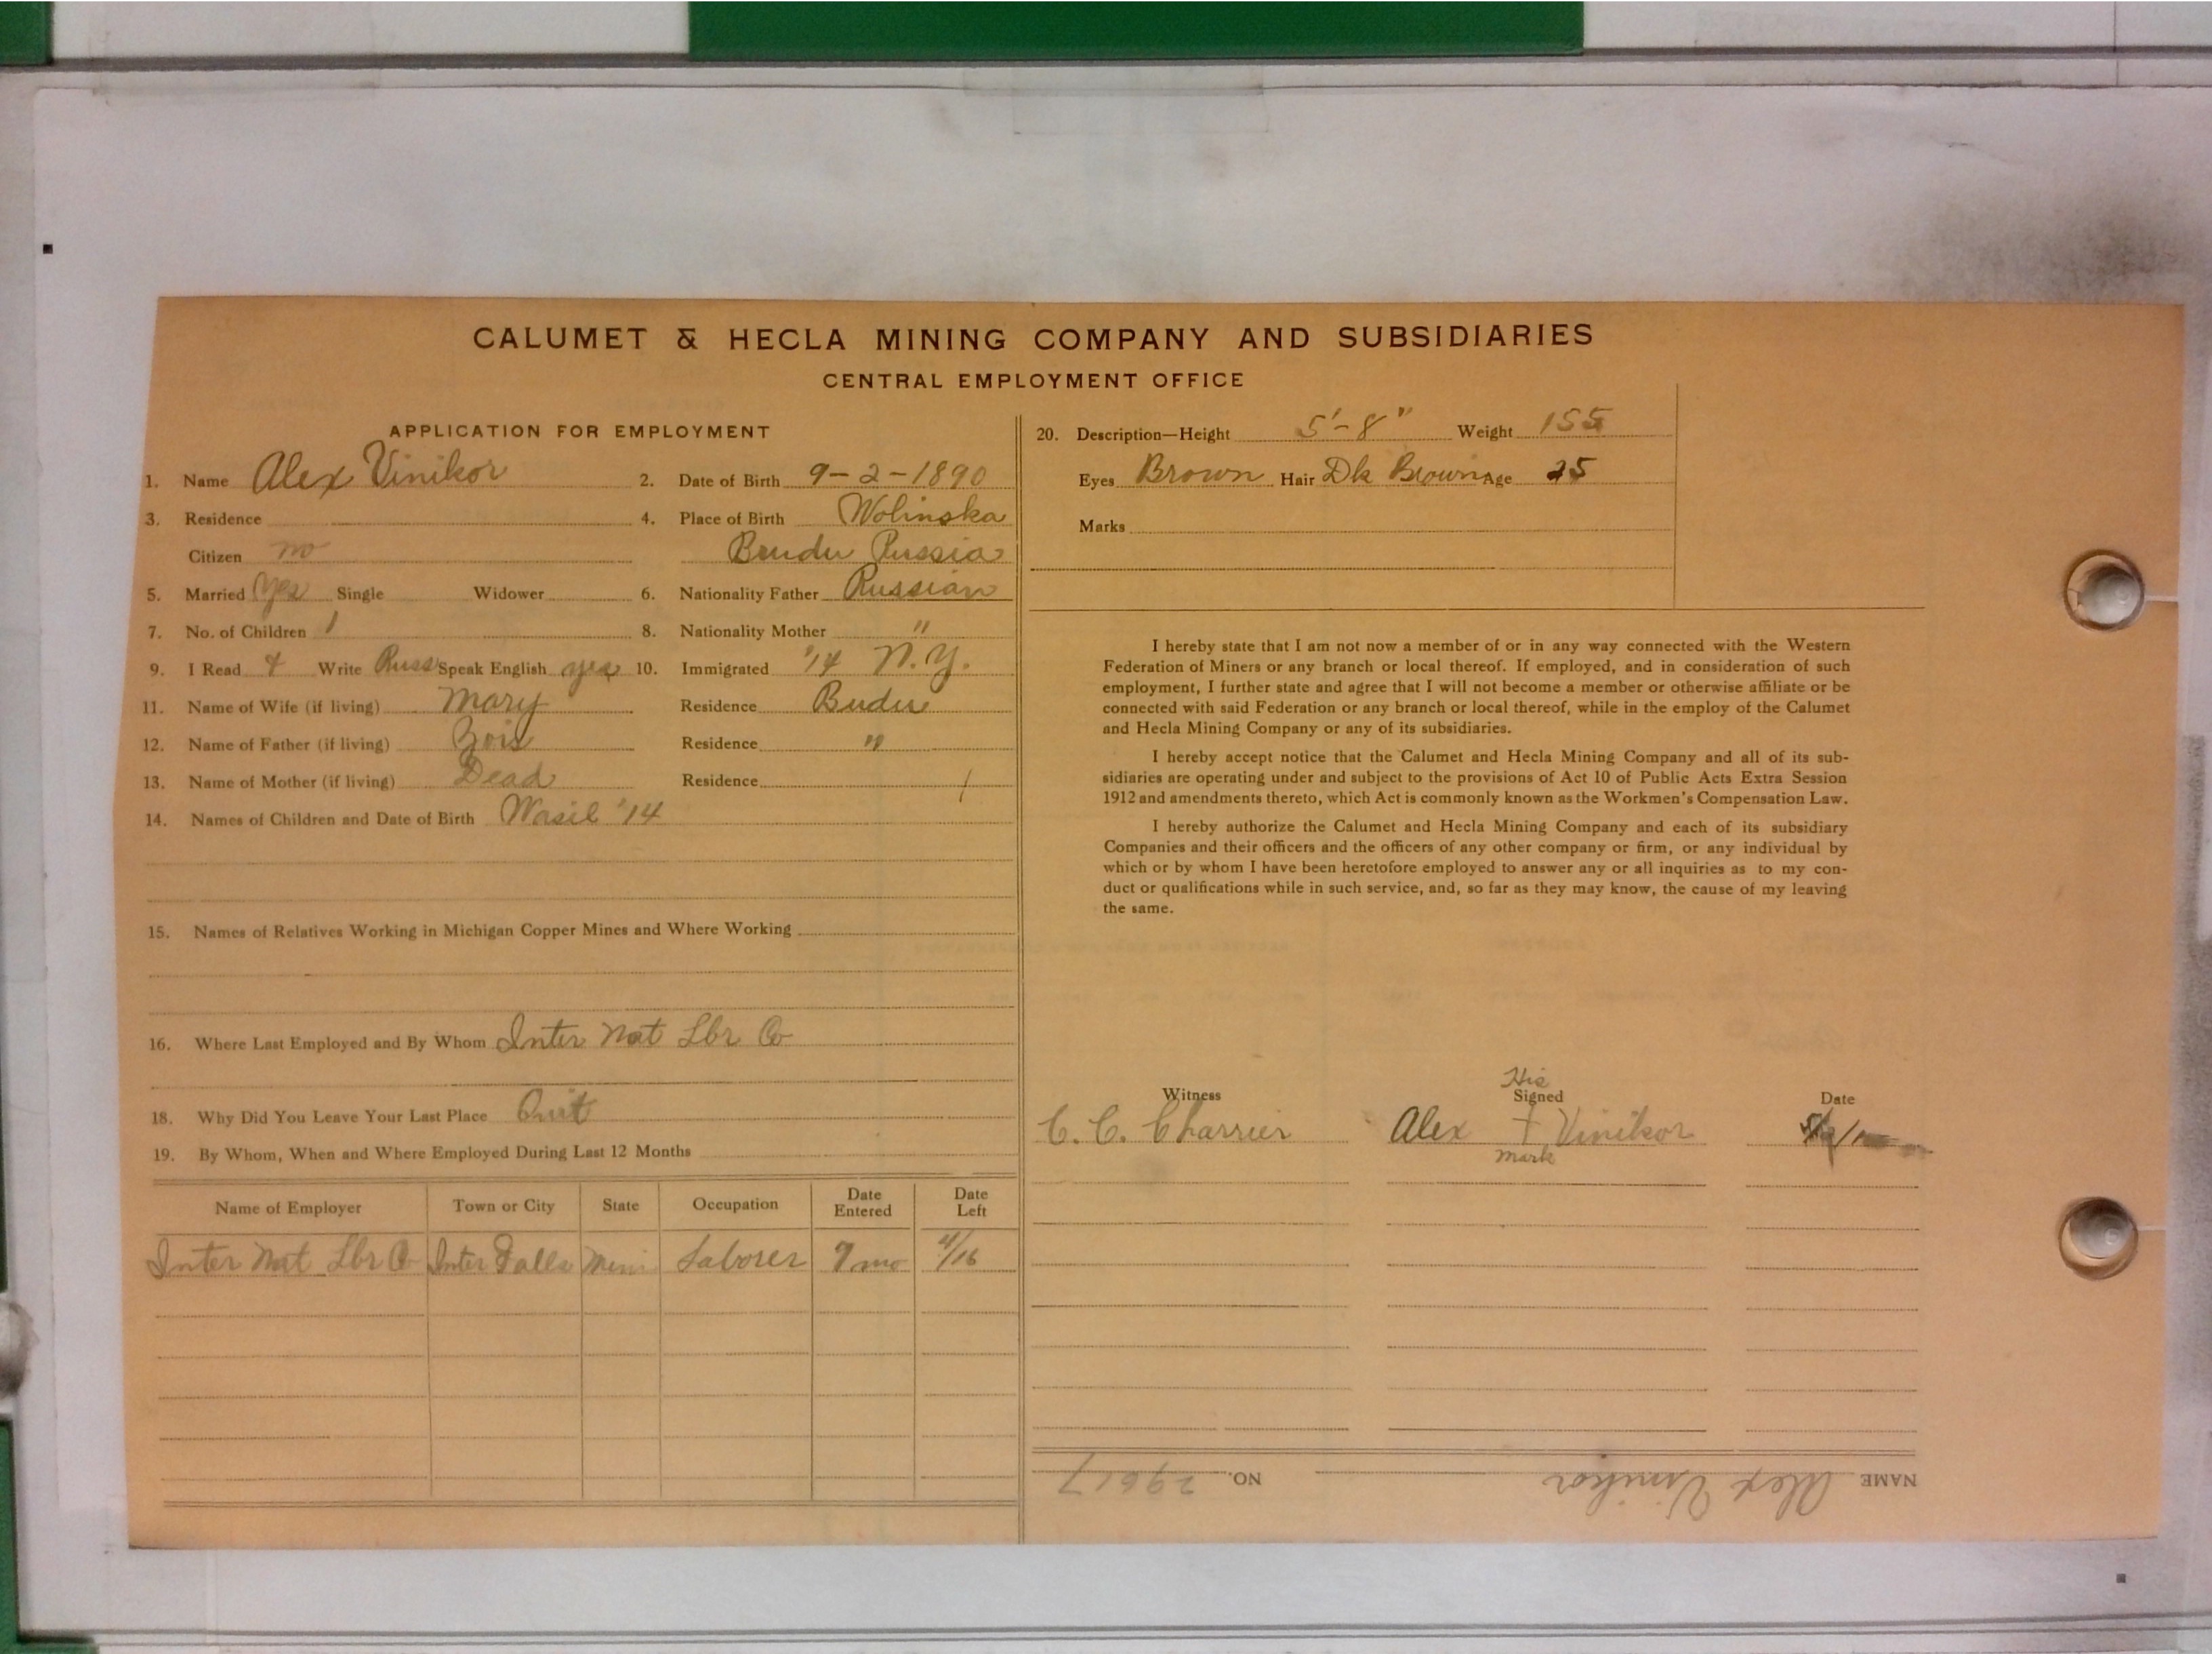 CALUMET & HECLA MINING COMPANY AND SUBSIDIARIES
CENTRAL EMPLOYMENT OFFICE
APPLICATION FOR EMPLOYMENT
1. Name Alex Vinikor 2. Date of Birth 9-2-1890
3. Residence 4. Place of Birth Wolinska
Citizen no Russia
5. Married Yes Single Widower 6. Nationality Father Russian
7. No. of Children 1 8. Nationality Mother "
9. I Read & Write Russ Speak English yes 10. Immigrated '14 N.Y.
11. Name of Wife (if living) Mary Residence
12. Name of Father (if living) Residence "
13. Name of Mother (if living) Dead Residence
14. Names of Children and Date of Birth Wasil '14
15. Names of Relatives Working in Michigan Copper Mines and Where Working
16. Where Last Employed and By Whom Inter Nat Lbr Co
18. Why Did You Leave Your Last Place Quit
19. By Whom, When and Where Employed During Last 12 Months
Name of Employer Town or City State Occupation Date Entered Date Left
Inter Nat Lbr Co Inter Falls Minn Laborer mo 4/16
20. Description—Height 5'-8" Weight 155
Eyes Brown Hair Dk Brown Age 25
Marks
I hereby state that I am not now a member of or in any way connected with the Western
Federation of Miners or any branch or local thereof. If employed, and in consideration of such
employment, I further state and agree that I will not become a member or otherwise affiliate or be
connected with said Federation or any branch or local thereof, while in the employ of the Calumet
and Hecla Mining Company or any of its subsidiaries.
I hereby accept notice that the Calumet and Hecla Mining Company and all of its sub-
sidiaries are operating under and subject to the provisions of Act 10 of Public Acts Extra Session
1912 and amendments thereto, which Act is commonly known as the Workmen's Compensation Law.
I hereby authorize the Calumet and Hecla Mining Company and each of its subsidiary
Companies and their officers and the officers of any other company or firm, or any individual by
which or by whom I have been heretofore employed to answer any or all inquiries as to my con-
duct or qualifications while in such service, and, so far as they may know, the cause of my leaving
the same.
His
Witness Signed Date
C. C. Charrier Alex + Vinikor
mark
NAME Alex Vinikor NO. 29617